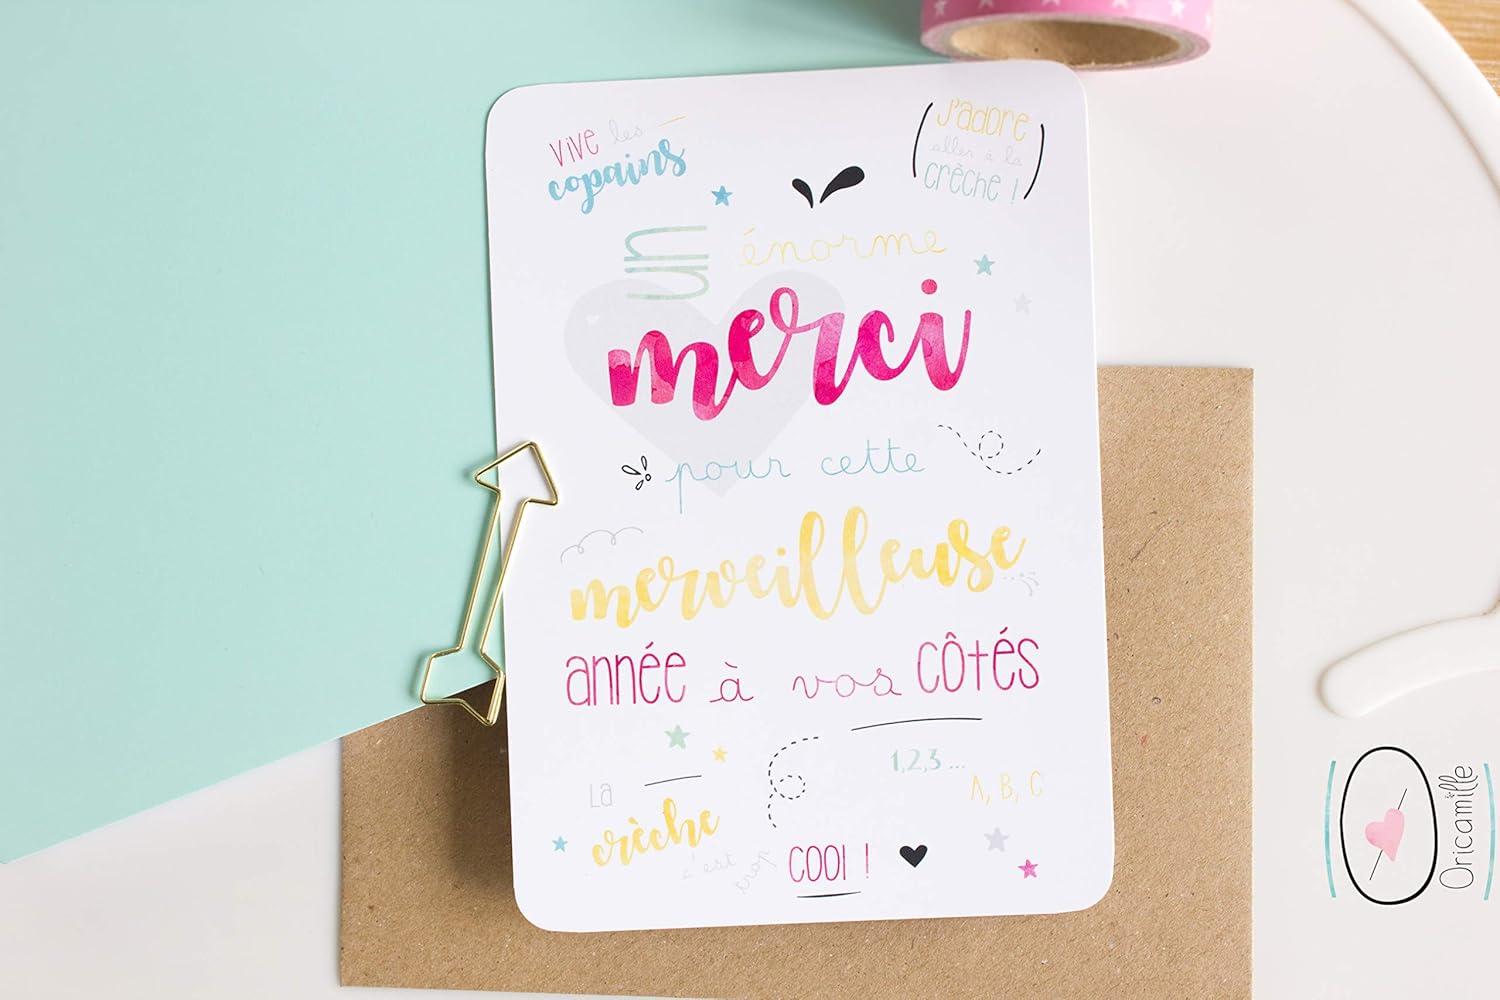 Vive les
copains
J'adore
aller à la
crèche !
un énorme
merci
pour cette
merveilleuse
année à vos côtés
1,2,3 ...
A, B, C
La
crèche
c'est trop
cool !
Oricamille